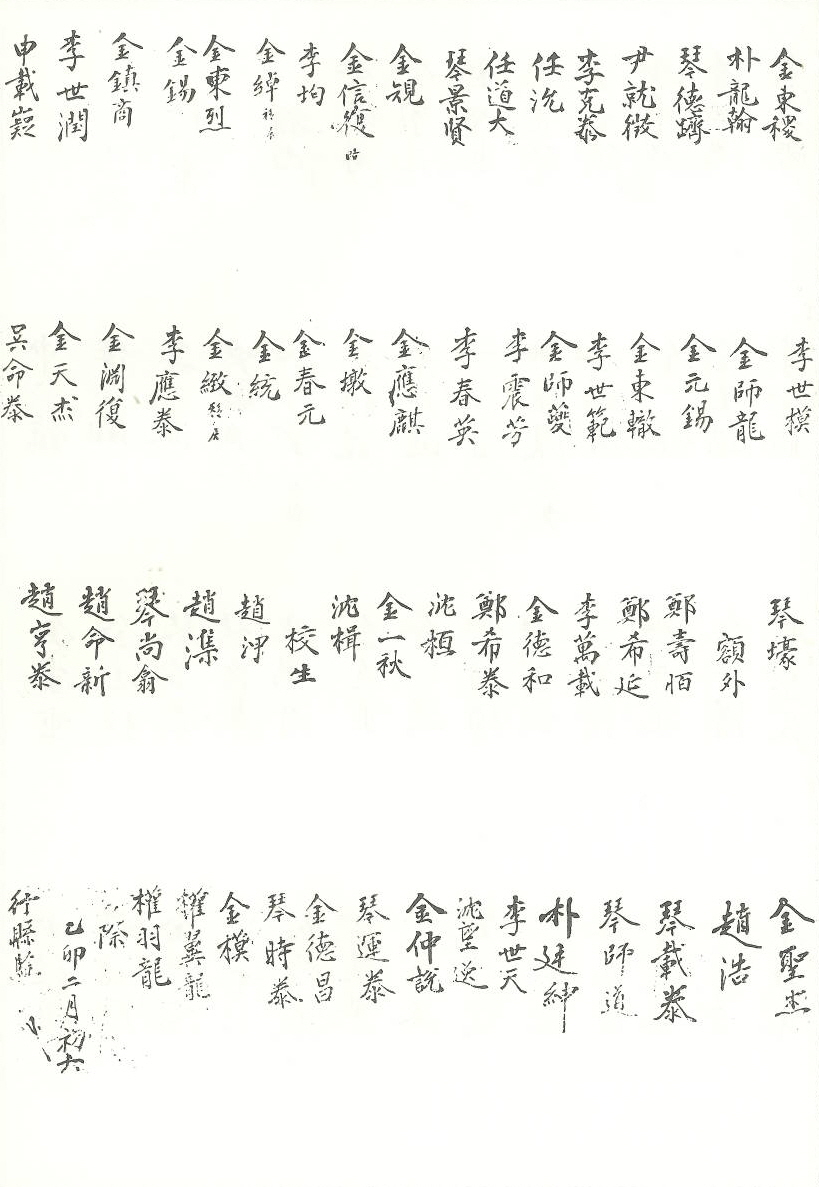 金東稷
朴龍翰
琴德躋
尹就徵
李克泰
任沇
任道大
琴景賢
金覞
金信復
李均
金繂 移居
金東烈
金錫
金鎮商
李世潤
申載嶷
李世模
金師龍
金元錫
金東轍
李世範
金師夔
李震芳
李春英
金應麒
金墩
金春元
金統
金緻 移居
李應泰
金潤復
金天杰
吳命泰
琴壕
額外
鄭壽恒
鄭希延
李萬載
金德和
鄭希泰
沈極
金一秋
沈楫
校生
趙泙
趙濮
琴尚翕
趙命新
趙亨泰
金聖杰
趙浩
琴載泰
琴師道
朴廷紳
李世天
沈望逸
金仲說
琴運泰
金德昌
琴時泰
金模
權翼龍
權羽龍
除
乙卯二月初六
行縣監